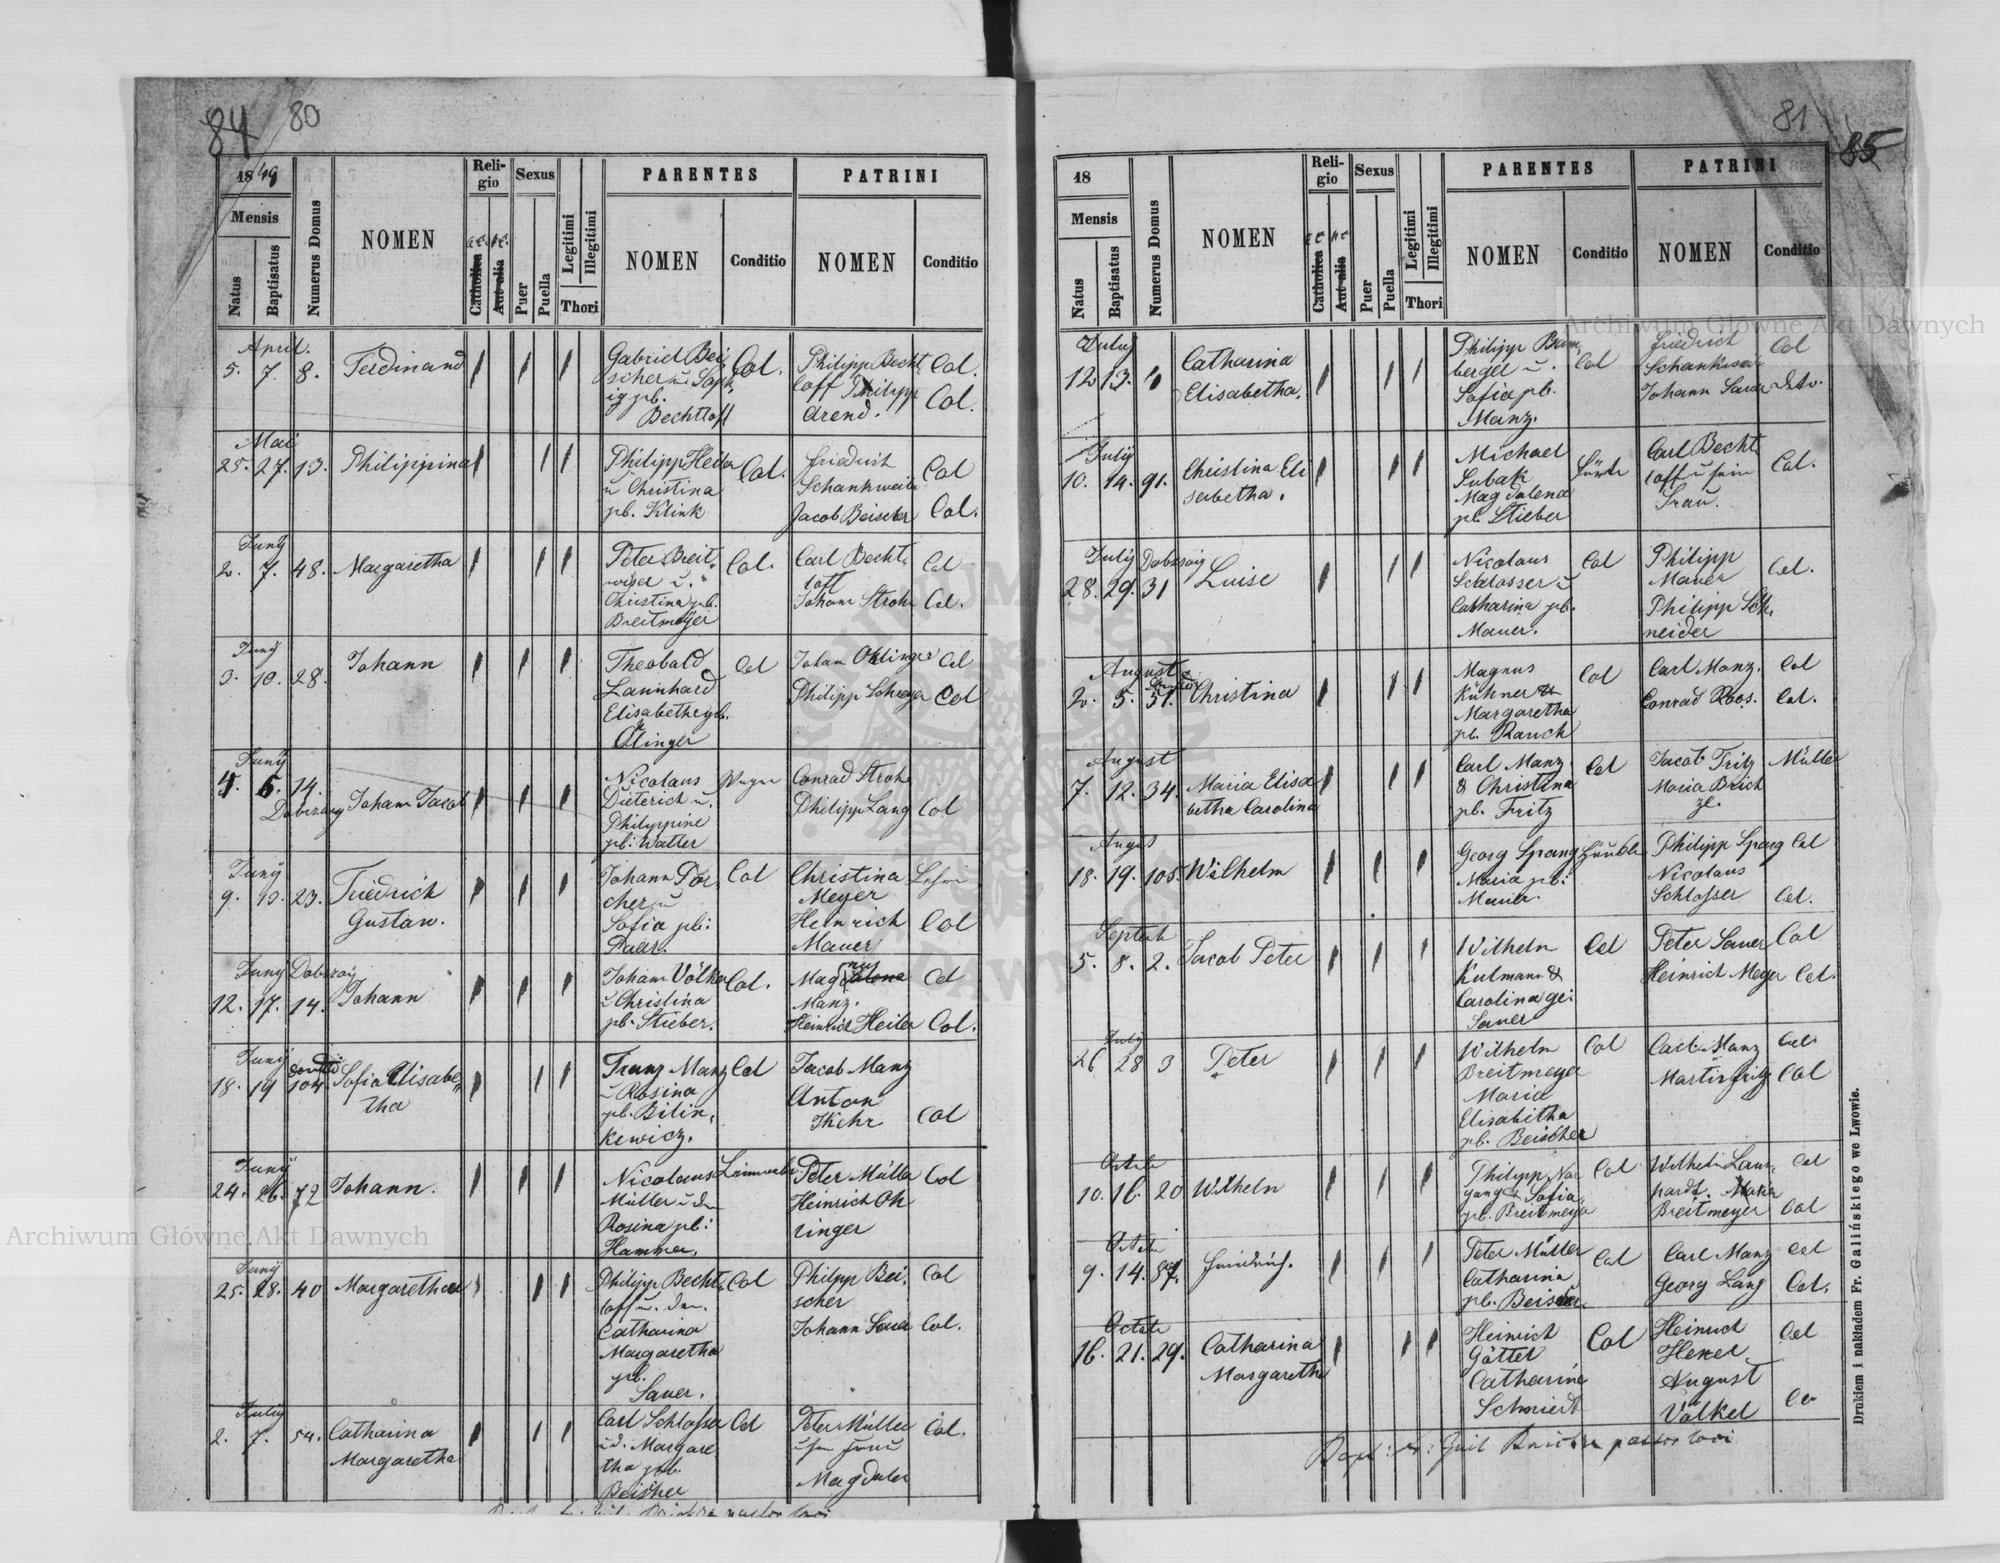 84 80
1849
Mensis
Natus
Baptisatus
Numerus Domus
NOMEN
Reli-
gio
Catholica
Aut alia
Sexus
Puer
Puella
Legitimi
Illegitimi
Thori
PARENTES
NOMEN
Conditio
PATRINI
NOMEN
Conditio
April.
5. 7. 8. Ferdinand
Gabriel Bei
scher u. Soph
ig gb.
Bechtloff
Col.
Philipp Becht Col.
loff Philipp
Arend. Col.
Mai
25. 27. 13. Philippina
Philipp Heiler
u Christina
gb. Klink
Col.
Friedrich Col
Schankweiler
Jacob Beischer Col.
Juny
2. 7. 48. Margaretha
Peter Breit
wiser u.
Christina gb.
Breitmeyer
Col.
Carl Becht Col
loff
Johann Stroh Col.
Juny
3. 10. 28. Johann
Theobald
Lannhard
Elisabethe gb.
Olinger
Col
Johan Ohlinger Col
Philipp Schreyer Col
Juny
4. 6. 14.
Dobrzany Johann Jacob
Nicolaus
Dieterich u.
Philippine
gb. Walter
Conrad Stroh
Philipp Lang Col
Juny
9. 10. 23. Friedrich
Gustav.
Johann Por
cher u
Sofia gb:
Paar.
Col
Christina
Meyer
Heinrich Col
Mauer
Juny Dobrzany
12. 17. 14. Johann
Johann Völker
u Christina
gb. Stieber.
Col.
Magnus Col
Manz.
Heinrich Heiler Col.
Juny
18. 19 104 Sofia Elisabe
tha
Franz Manz
u Rosina
gb. Bilin
kewicz.
Col
Jacob Manz
Anton
Kehr Col
Juny
24. 26. 72 Johann.
Nicolaus
Müller u d
Rosina gb:
Hammer.
Peter Müller Col
Heinrich Oh
linger
Juny
25. 28. 40 Margaretha
Philipp Becht
loff u. den.
Catharina
Margaretha
gb.
Sauer.
Col
Philipp Bei Col
scher
Johann Sauer Col.
July
2. 7. 54. Catharina
Margaretha
Carl Schlosser
u d. Margare
tha gb.
Beischer
Col
Peter Müller Col.
u sein Frau
Magdalen
81
85
18
Mensis
Natus
Baptisatus
Numerus Domus
NOMEN
Reli-
gio
Catholica
Aut alia
Sexus
Puer
Puella
Legitimi
Illegitimi
Thori
PARENTES
NOMEN
Conditio
PATRINI
NOMEN
Conditio
July
12 13. 4 Catharina
Elisabetha.
Philipp Bam
berger u.
Sofia gb.
Manz.
Col
Friedrich Col
Schankwei
Johann Sauer deto.
July
10. 14. 91. Christina Eli
sabetha.
Michael
Subak
Magdalena
gb. Stieber
Carl Becht
loff u sein Col.
Frau.
July Dobrzany
28. 29. 31 Luise
Nicolaus
Schlosser u
Catharina gb.
Mauer.
Col
Philipp
Mauer Col.
Philipp Sch
neider
August
2. 5. 51. Christina
Magnus
Kühner &
Margaretha
gb. Rauch
Col
Carl Manz. Col
Conrad Roos. Col.
August
7. 12. 34. Maria Elisa
betha Carolina
Carl Manz
& Christina
gb. Fritz
Col
Jacob Fritz Müller
Maria Brich
zl.
Augus
18. 19. 105. Wilhelm
Georg Spang
Maria gb:
Mauer.
Philipp Spang Col
Nicolaus
Schlosser Col.
Septemb
5. 8. 2. Jacob Peter
Wilhelm
Kulmann &
Carolina ge:
Sauer
Col
Peter Sauer Col
Heinrich Meyer Col.
July
26 28 3 Peter
Wilhelm
Breitmeye
Maria
Elisabetha
gb. Beischer
Col
Carl Manz Col
Martin Fritz Col
Octob
10. 16. 20 Wilhelm
Philipp Na
gang & Sofia
gb. Breitmeye
Col
Wilhelm Lann Col
hardt. Maria
Breitmeyer Col
Octob
9. 14. 87. Friedrich.
Peter Müller
Catharina
gb. Beischer
Col
Carl Manz Col
Georg Lang Col.
Octob
16. 21. 29. Catharina
Margaretha
Heinrich
Götter
Catharine
Schmiedt
Col
Heinrich Col
Hexel
August
Völkel Co
Bapt: Guil pastor loci
Drukiem i nakładem Fr. Galińskiego we Lwowie.
Archiwum Główne Akt Dawnych
Archiwum Główne Akt Dawnych